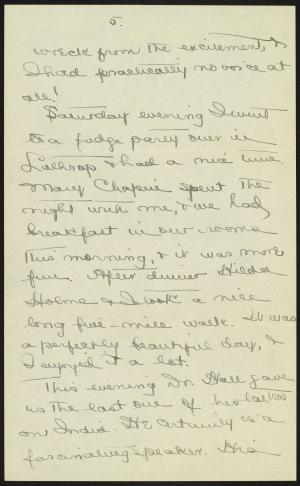 5.
wreck from the excitement, &
I had practically no voice at
all!
Saturday evening I went
to a fudge party over in
Lathrop & had a nice time.
Mary Chapin spent the
night with me, & we had
breakfast in our rooms
this morning, & it was more
fun. After dinner Hilda
Holme & I took a nice
long five-mile walk. It was
a perfectly beautiful day, &
I enjoyed it a lot.
This evening Dr. Hall gave
us the last one of his talks
on India. He certainly is a
fascinating speaker. His